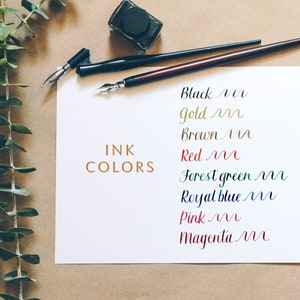 INK
COLORS
Black
Gold
Brown
Red
Forest green
Royal blue
Pink
Magenta